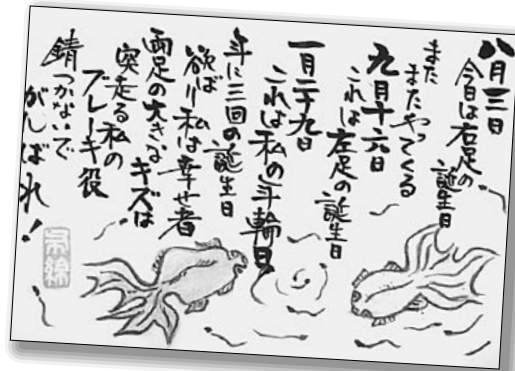 八月三日
今日は右足の
誕生日
また
またやってくる
九月十六日
これは左足の
誕生日
一月二十九日
これは私の年輪日
年に三回の誕生日
欲ばり私は幸せ者
両足の大きなキズは
突走る私の
ブレーキ役
錆つかないで
がんばれ！